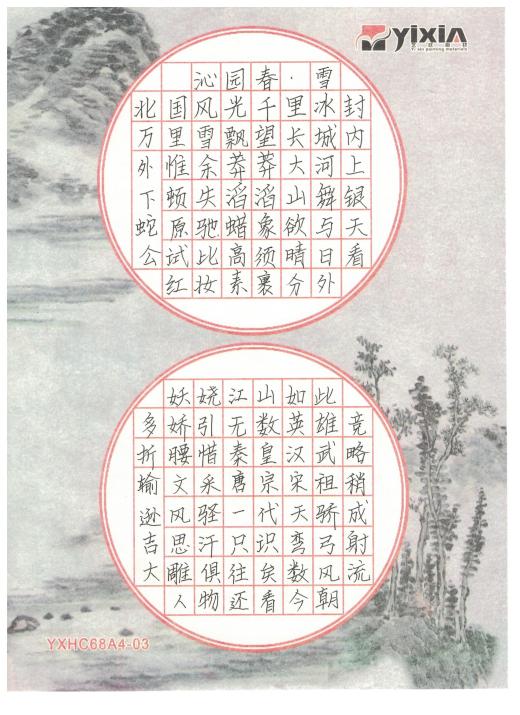 yixin
Yi xin painting materials
沁园春·雪
北国风光千里冰封
万里雪飘望长城内
外惟余莽莽大河上
下顿失滔滔山舞银
蛇原驰蜡象欲与天
公试比高须晴日看
红妆素裹分外
妖娆江山如此
多娇引无数英雄竞
折腰惜秦皇汉武略
输文采唐宗宋祖稍
逊风骚一代天骄成
吉思汗只识弯弓射
大雕俱往矣数风流
人物还看今朝
YXHC68A4-03